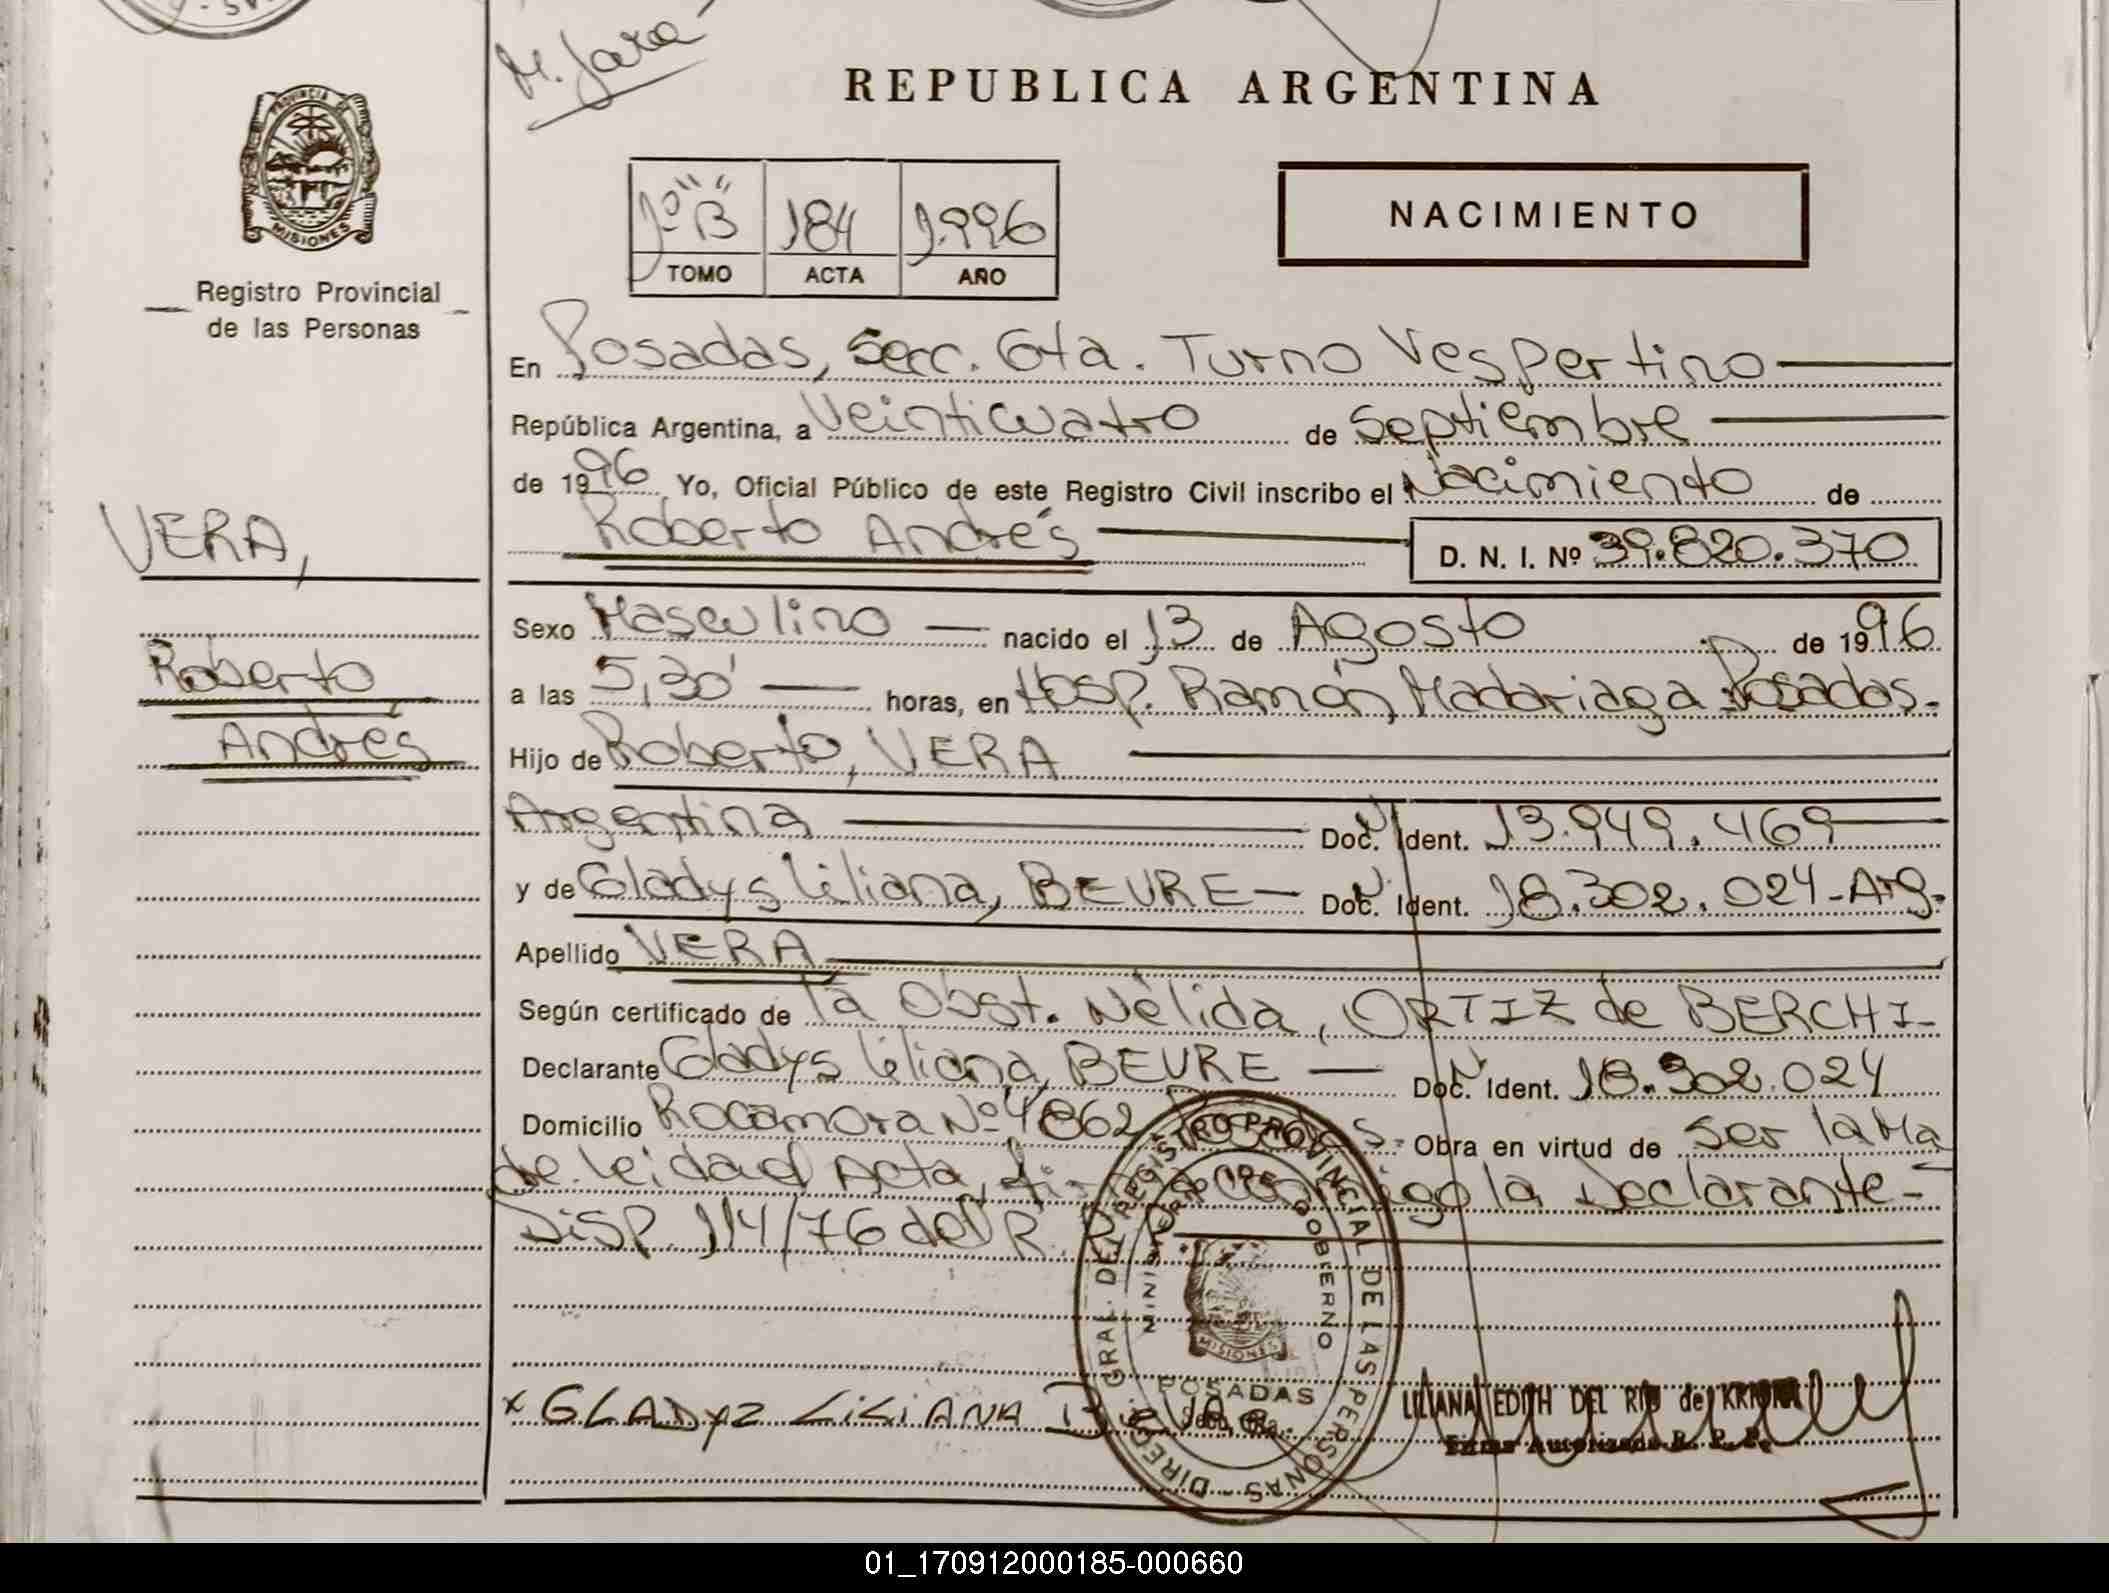 M. Jara
REPUBLICA ARGENTINA
PROVINCIA DE
MISIONES
Registro Provincial
de las Personas
1º "B" 184 1.996
TOMO ACTA AÑO
NACIMIENTO
En Posadas, Secc. 6ta. Turno Vespertino
República Argentina, a Veinticuatro de Septiembre
de 1996 Yo, Oficial Público de este Registro Civil inscribo el Nacimiento de
Roberto Andrés D. N. I. Nº 39.820.370
VERA,
Roberto
Andrés
Sexo Masculino nacido el 13 de Agosto de 1996
a las 5,30' horas, en Hosp. Ramón Madariaga Posadas.
Hijo de Roberto, VERA
Argentina Doc. Ident. 13.949.469
y de Gladys Liliana, BEVRE Doc. Ident. 18.302.024-Arg.
Apellido VERA
Según certificado de la Obst. Nélida, ORTIZ de BERCHI-
Declarante Gladys Liliana, BEVRE Doc. Ident. 18.302.024
Domicilio Rocamora Nº 4862 Obra en virtud de Ser la Ma
de. leida el Acta, la Declarante-
Disp. 114/76 del R.
DIREC. GRAL. DEL REGISTRO PROVINCIAL DE LAS PERSONAS
MINISTERIO DE GOBIERNO
MISIONES
POSADAS
x GLADYZ LILIANA
LILIANA EDITH DEL RIO de
Firma Autorizada R. P. P.
01_170912000185-000660